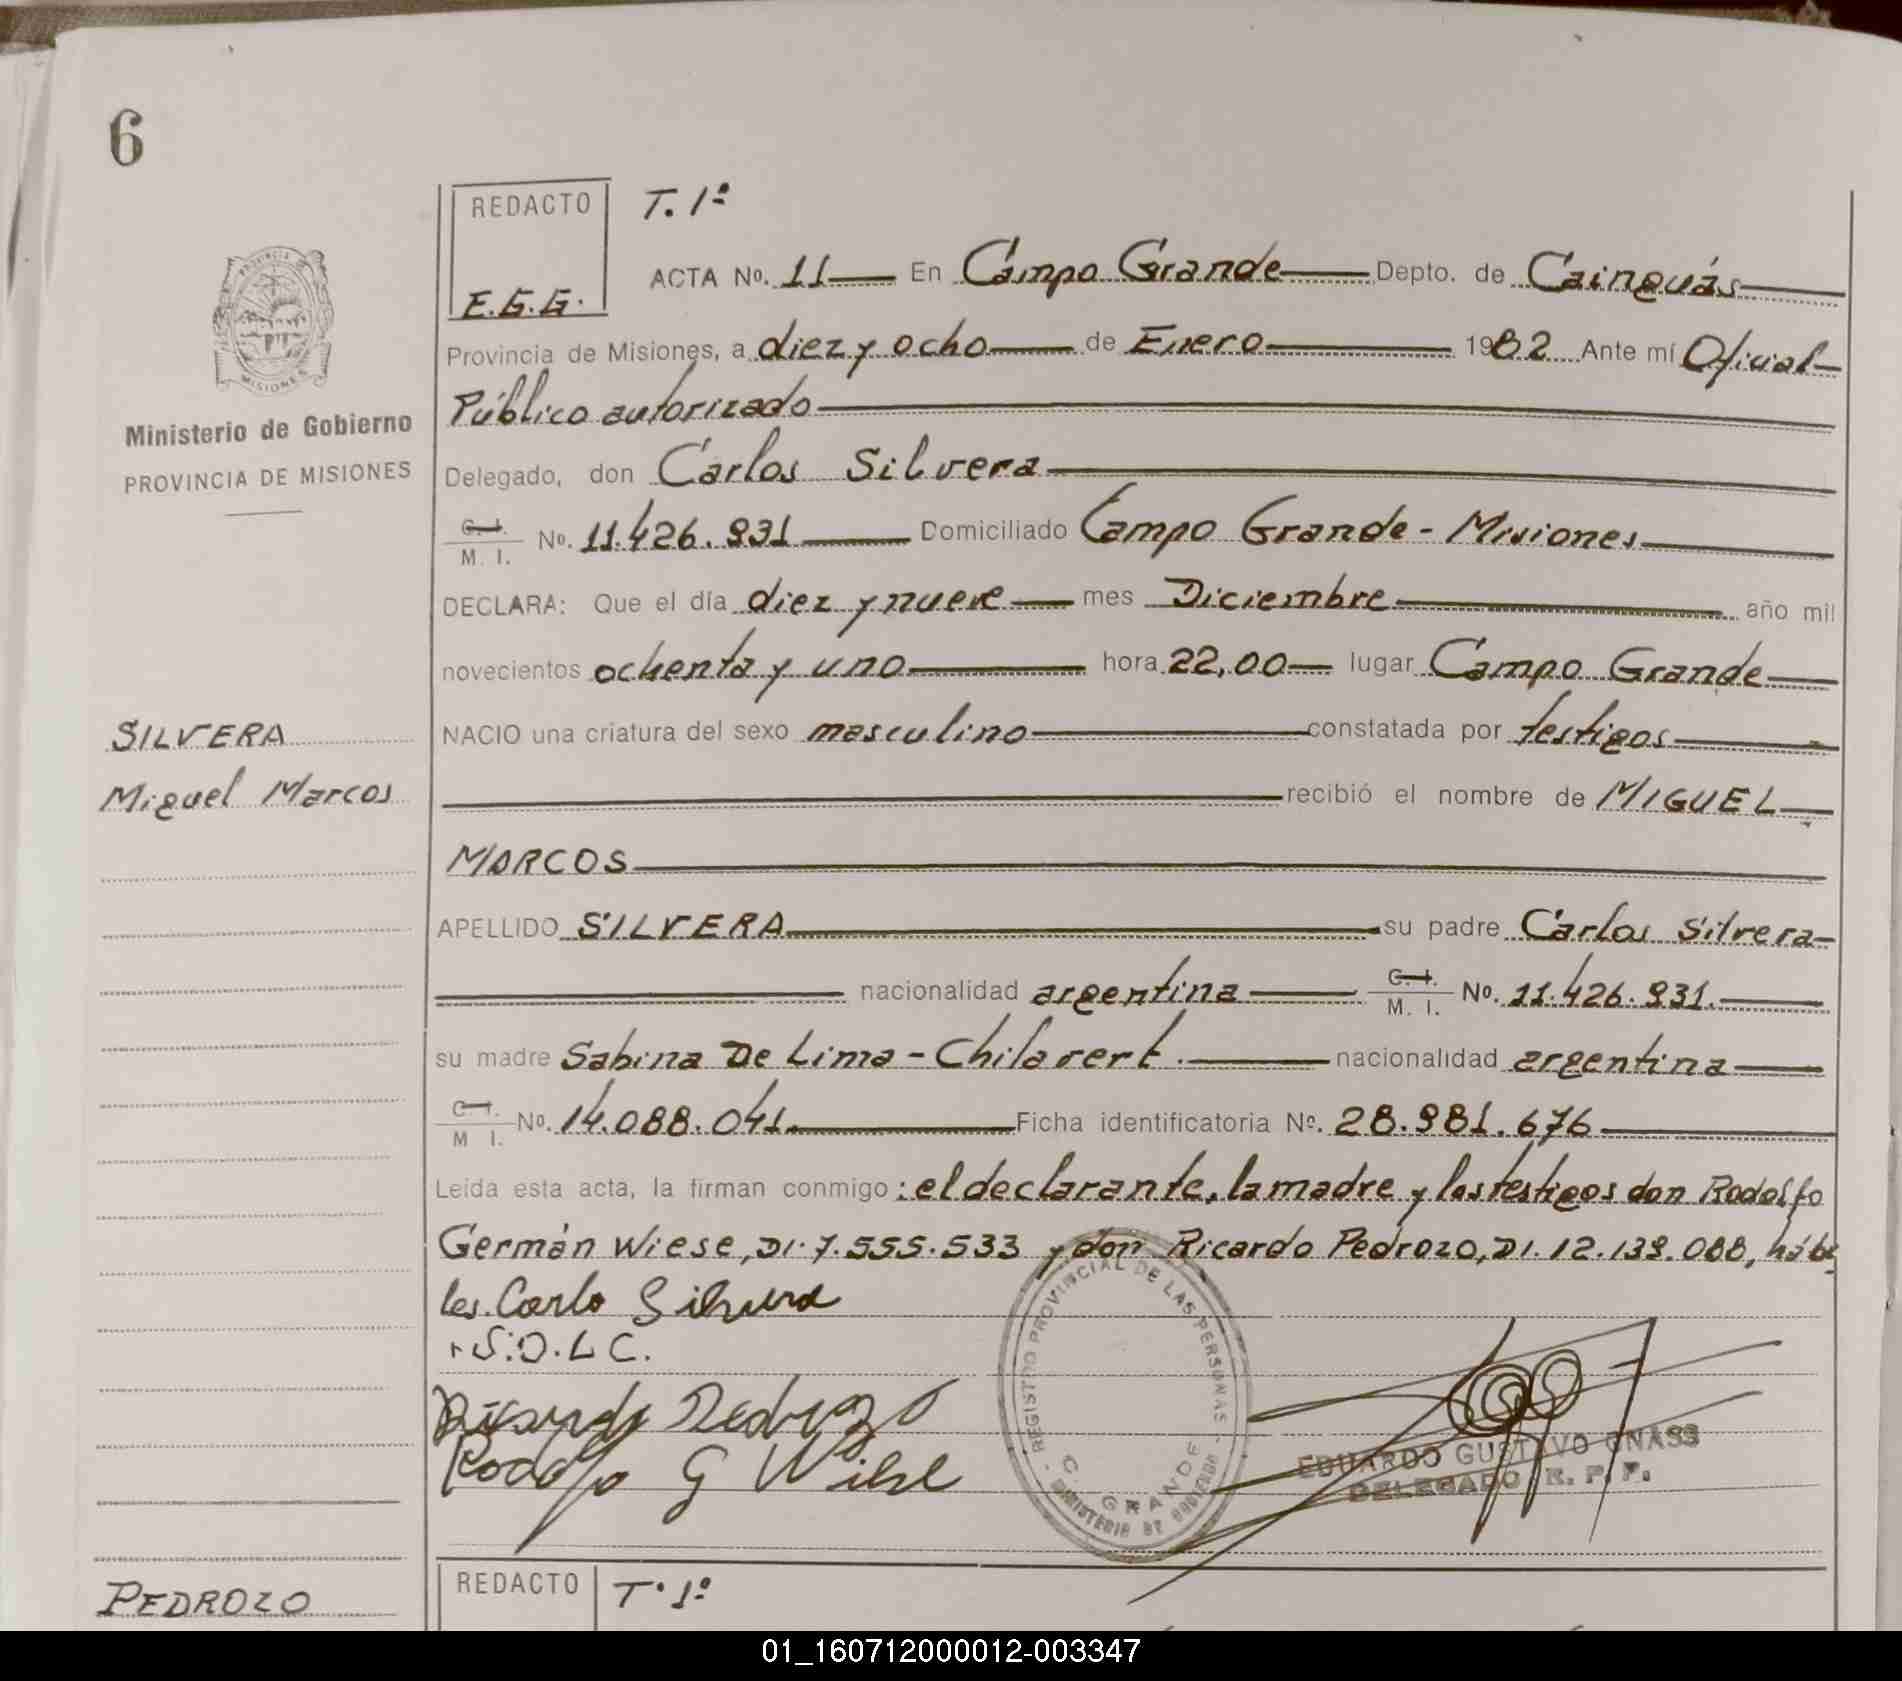 6
REDACTO
T. 1º
E.G.G.
ACTA Nº. 11 En Campo Grande Depto. de Cainguás
Provincia de Misiones, a diez y ocho de Enero 1982 Ante mí Oficial
Público autorizado
PROVINCIA
MISIONES
Ministerio de Gobierno
PROVINCIA DE MISIONES
Delegado, don Carlos Silvera
C. I. M. I. Nº. 11.426.931 Domiciliado Campo Grande - Misiones
DECLARA: Que el día diez y nueve mes Diciembre año mil
novecientos ochenta y uno hora 22,00 lugar Campo Grande
SILVERA
NACIO una criatura del sexo masculino constatada por testigos
Miguel Marcos
recibió el nombre de MIGUEL
MARCOS
APELLIDO SILVERA su padre Carlos Silvera
nacionalidad argentina C. I. M. I. Nº. 11.426.931.
su madre Sabina De Lima - Chilavert. nacionalidad argentina
C. I. M I. Nº. 14.088.041. Ficha identificatoria Nº. 28.981.676
Leída esta acta, la firman conmigo: el declarante, la madre y los testigos don Rodolfo
Germán Wiese, DI. 7.555.533 y don Ricardo Pedrozo, DI. 12.139.088, hábi
les. Carlo Silvera
S.D.L C.
Ricardo Pedrozo
Rodolfo G Wiese
REGISTRO PROVINCIAL DE LAS PERSONAS
C. GRANDE
MINISTERIO DE GOBIERNO
EDUARDO GUSTAVO GNASS
DELEGADO R. P. P.
PEDROZO
REDACTO
T. 1º
01_160712000012-003347